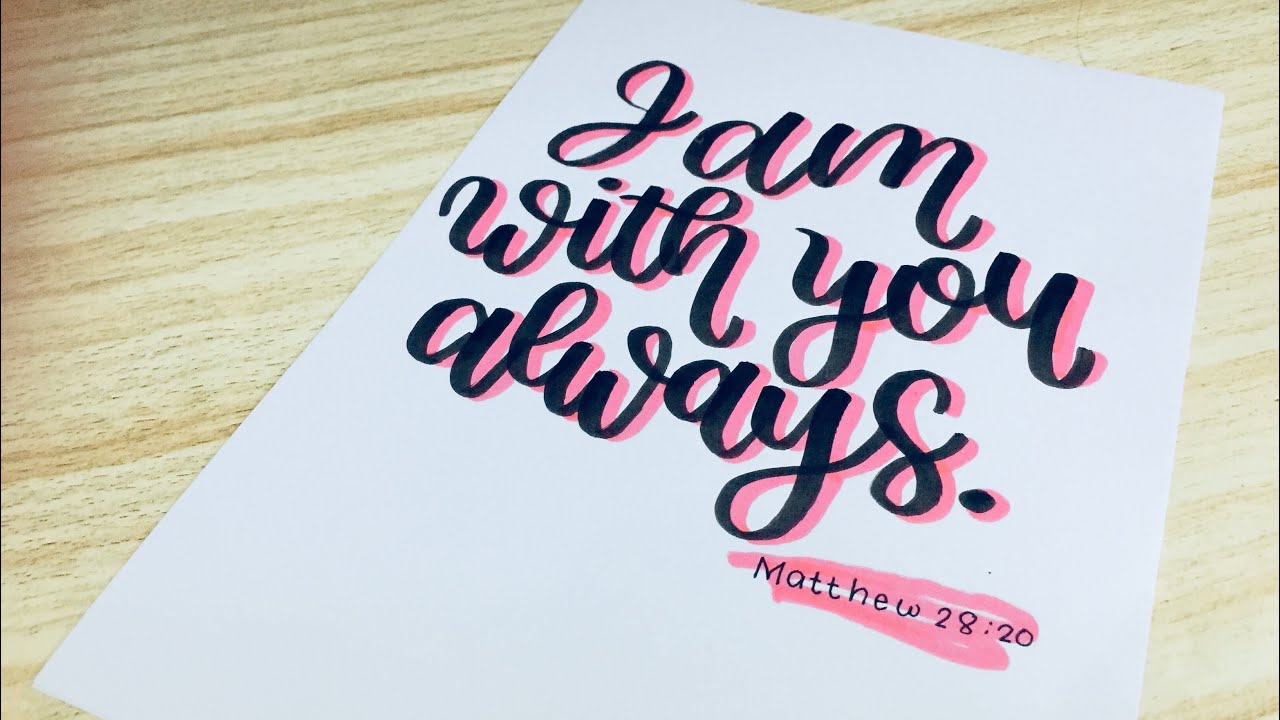 I am
with you
always.
Matthew 28:20